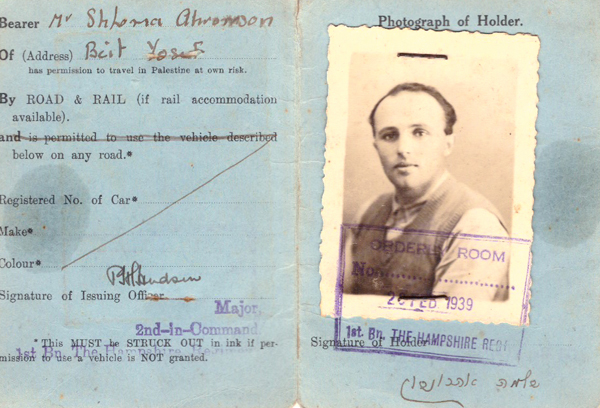 Bearer Mr Shloma Ahronson
Of (Address) Beit Yosef
has permission to travel in Palestine at own risk.
By ROAD & RAIL (if rail accommodation
available).
and is permitted to use the vehicle described
below on any road.*
Registered No. of Car*
Make*
Colour*
Signature of Issuing Officer
Major,
2nd-in-Command
1st Bn. The Hampshire Regiment
*This MUST be STRUCK OUT in ink if per-
mission to use a vehicle is NOT granted.
Photograph of Holder.
ORDERLY ROOM
No
2 FEB 1939
1st. Bn. THE HAMPSHIRE REGT
Signature of Holder
שלמה אהרונסון